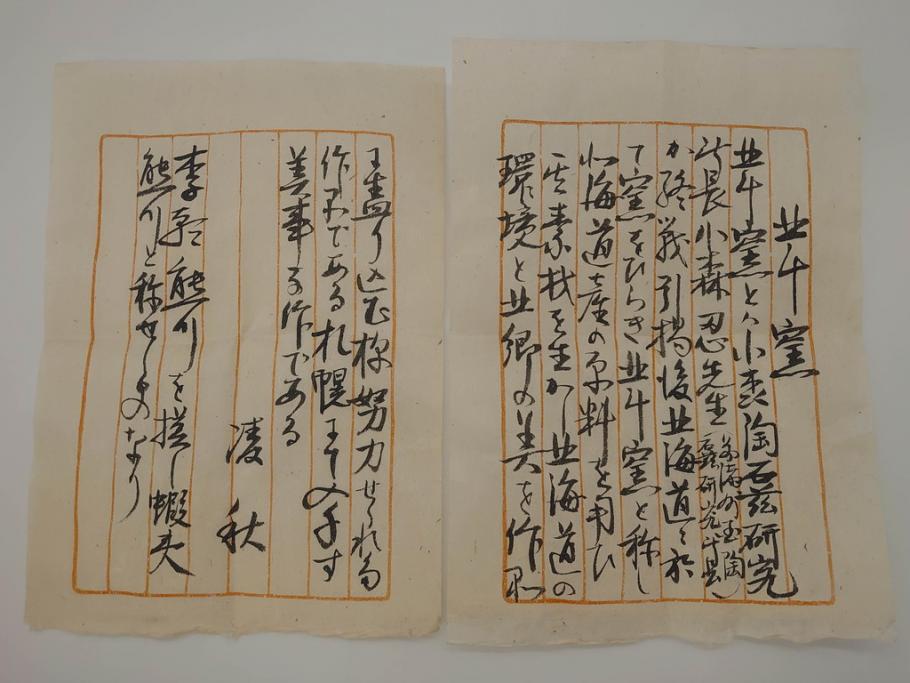 北斗窯
北斗窯とハ小森陶磁研究
所長小森忍先生（前満州国陶磁研究所長）
が終戦引揚後北海道に於
て窯をひらき北斗窯と称し
北海道産の原料を用ひ
其素材を生かし北海道の
環境と北郷の美を作品
に盛り込む様努力せられる
作品である札幌にて入手す
美事な作である
凌秋
李朝熊川を模し蝦夷
熊川と称せしものなり